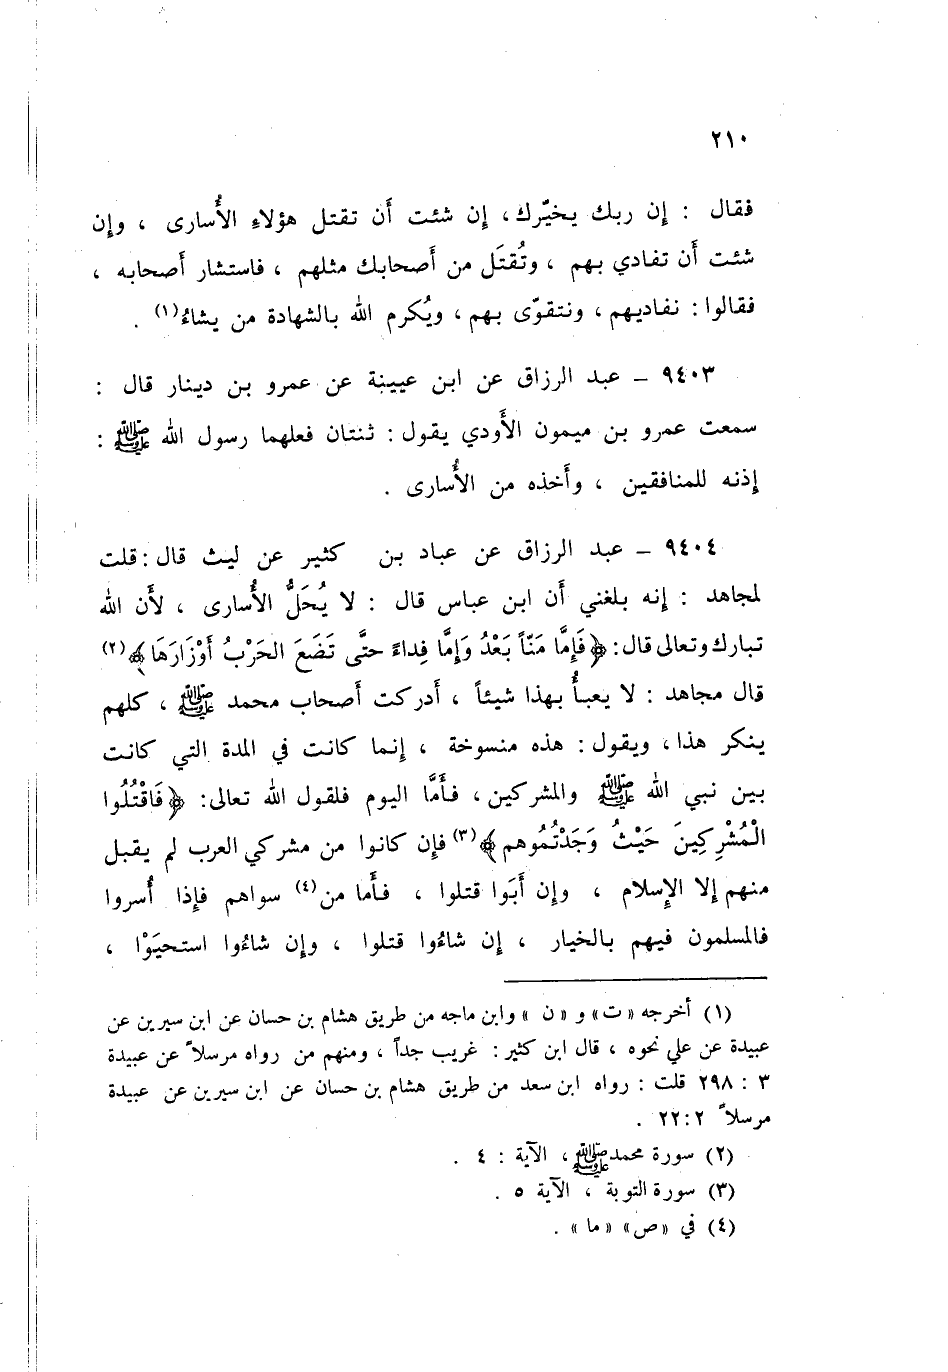 ٢١٠
فقال : إن ربك يخيّرك، إن شئت أن تقتل هؤلاءِ الأُسارى ، وإن
شئت أن تفادي بهم ، وتُقتَل من أصحابك مثلهم ، فاستشار أصحابه ،
فقالوا : نفاديهم ، ونتقوّى بهم ، ويُكرم الله بالشهادة من يشاءُ(١) .
٩٤٠٣ – عبد الرزاق عن ابن عيينة عن عمرو بن دينار قال :
سمعت عمرو بن ميمون الأَودي يقول : ثنتان فعلهما رسول الله ﷺ :
إِذنه للمنافقين ، وأَخذه من الأُسارى .
٩٤٠٤ – عبد الرزاق عن عباد بن كثير عن ليث قال : قلت
لمجاهد : إنه بلغني أن ابن عباس قال : لا يُحَلُّ الأُسارى ، لأن الله
تبارك وتعالى قال : ﴿فَإِمَّا مَنّاً بَعْدُ وَإِمَّا فِداءً حتَّى تَضَعَ الحَرْبُ أَوْزَارَهَا﴾(٢)
قال مجاهد : لا يعبأُ بهذا شيئاً ، أدركت أصحاب محمد ﷺ ، كلهم
ينكر هذا ، ويقول : هذه منسوخة ، إنما كانت في المدة التي كانت
بين نبي الله ﷺ والمشركين ، فأَمَّا اليوم فلقول الله تعالى : ﴿فَاقْتُلُوا
الْمُشْرِكِينَ حَيْثُ وَجَدْتُمُوهم﴾(٣) فإن كانوا من مشركي العرب لم يقبل
منهم إلا الإِسلام ، وإن أَبَوا قتلوا ، فأَما من(٤) سواهم فإذا أُسروا
فالمسلمون فيهم بالخيار ، إن شاءُوا قتلوا ، وإن شاءُوا استحيَوْا ،
(١) أخرجه «ت» و «ن » وابن ماجه من طريق هشام بن حسان عن ابن سيرين عن
عبيدة عن علي نحوه ، قال ابن كثير : غريب جداً ، ومنهم من رواه مرسلاً عن عبيدة
٣ : ٢٩٨ قلت : رواه ابن سعد من طريق هشام بن حسان عن ابن سيرين عن عبيدة
مرسلاً ٢ : ٢٢ .
(٢) سورة محمد ﷺ ، الآية : ٤ .
(٣) سورة التوبة ، الآية ٥ .
(٤) في «ص» «ما» .